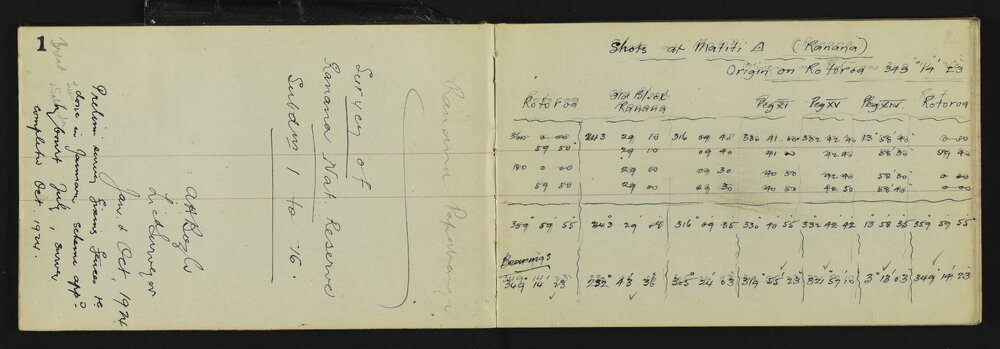 1
Ranana Papakainga
Survey of
Ranana Nat Reserve
Subdns 1 to 16.
Licd Surveyor
Jan. & Oct. 1924
done in January, scheme appd
about July, survey
completed Oct. 1924.
Shots at Matiti △ (Ranana)
Origin on Rotoroa 349° 14' 23
Rotoroa Old Block Ranana Peg XI Peg XV Peg XIV Rotoroa
360 0 00 243 29 10 316 09 40 330 41 00 332 42 40 13° 58' 40" 0 00
59 50 29 10 09 40 41 00 42 40 58' 30 59 40
180 0 00 29 00 09 30 40 50 42 40 58' 30 0 00
59 50 29 00 09 30 40 50 42 50 58' 40" 0 00
359° 59 55 243 29 316° 09 35 330 40 55 332 42 42 13 58 35 359 59 55
Bearings
349° 14' 23 232° 43 305 24 03 319 55 23 321 57 10 3° 13' 03 349° 14' 23